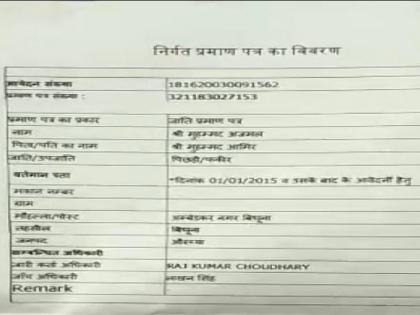 निर्गत प्रमाण पत्र का विवरण
आवेदन संख्या 181620030091562
प्रमाण पत्र संख्या : 321183027153
प्रमाण पत्र का प्रकार जाति प्रमाण पत्र
नाम श्री मुहम्मद अजमल
पिता/पति का नाम श्री मुहम्मद आमिर
जाति/उपजाति पिछड़ी/फकीर
वर्तमान पता *दिनांक 01/01/2015 व उसके बाद के आवेदनों हेतु
मकान नम्बर
ग्राम
मोहल्ला/पोस्ट अम्बेडकर नगर बिधूना
तहसील बिधूना
जनपद औरय्या
सम्बन्धित अधिकारी
जारी कर्ता अधिकारी RAJ KUMAR CHOUDHARY
जाँच अधिकारी लाखन सिंह
Remark